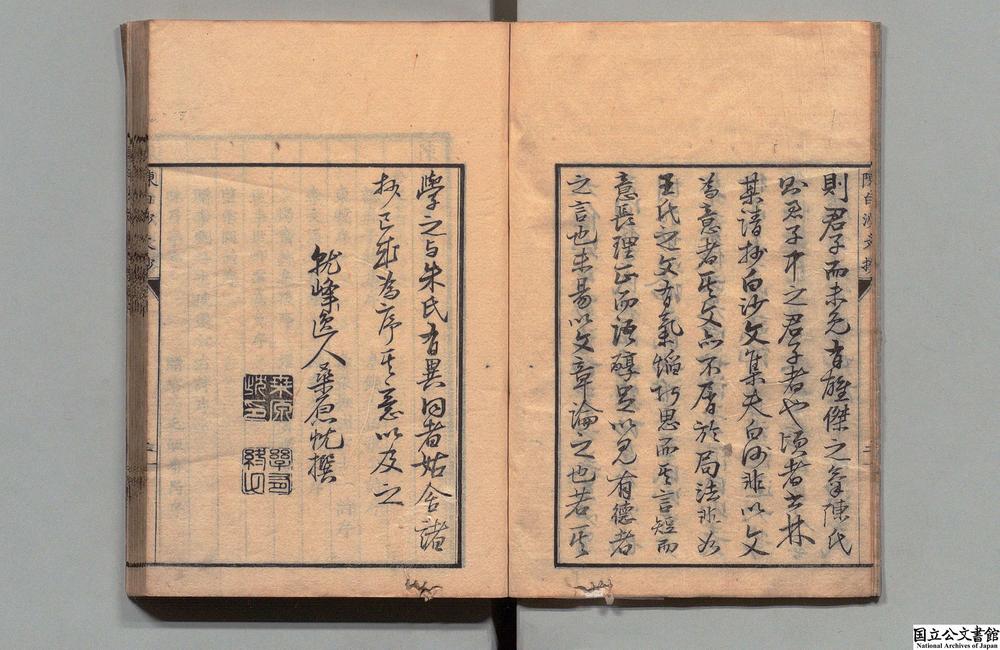 則君子而未免有雄傑之氣陳氏
則君子中之君子者也頃者書林
某請抄白沙文集夫白沙非以文
為意者其文亦不屑於局法非如
王氏之文有氣焰折思而其言短而
意長理正而語醇足以見有德者
之言也未易以文章論之也若其
學之与朱氏有異同者姑舍諸
抄已成為序其意以及之
鷲峰逸人桑原忱撰
桑原忱印
陳白沙文抄
国立公文書館
National Archives of Japan